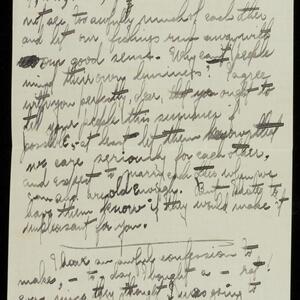 not see too awfully much of each other
and let our feelings run away with
our good sense. Why can't people
mind their own business! I agree
with you perfectly, dear, that you ought to
tell your people this summer if
possible, at least let them know that
we care seriously for each other,
and expect to marry each other when we
are old enough. But I hate to
have them know if they would make it
unpleasant for you.
I have an awful confession to
make, — to-day I bought a — hat!